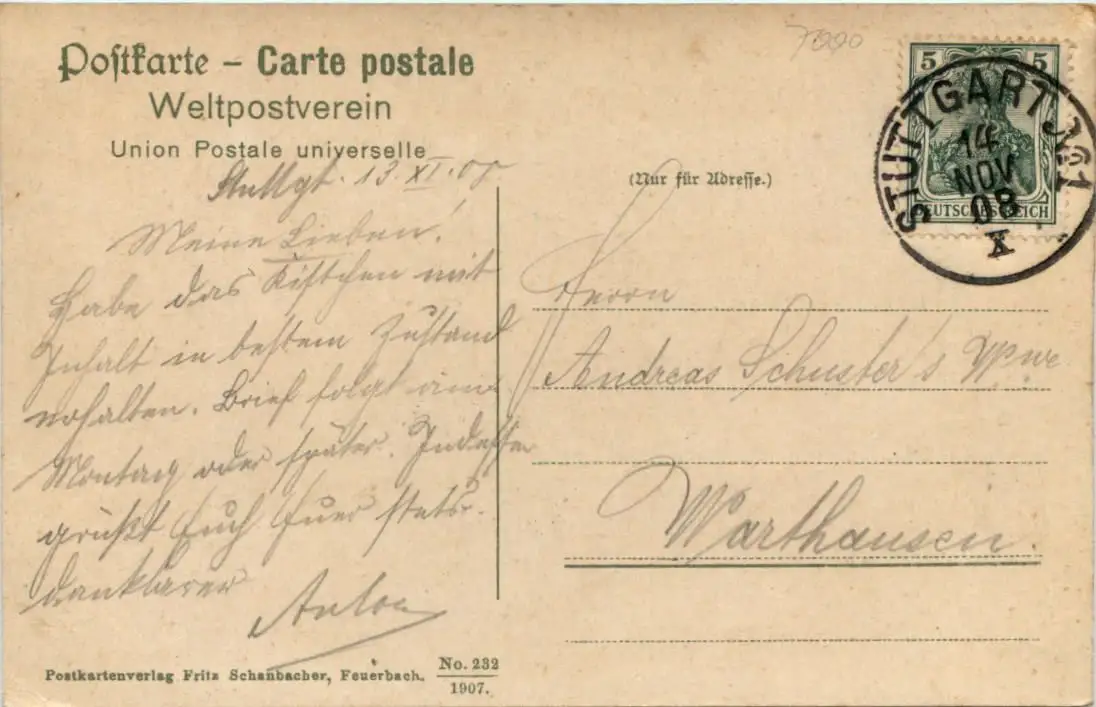 Postkarte – Carte postale
Weltpostverein
Union Postale universelle
Stuttgt. 13. XI. 08
Meine Lieben!
Habe das Kistchen mit
Inhalt in bestem Zustand
erhalten. Brief folgt am
Montag oder später. Indessen
grüßt Euch Euer stets
dankbarer
Anton
Postkartenverlag Fritz Schanbacher, Feuerbach. No. 232
1907.
7000
5 5
DEUTSCHES REICH
STUTTGART No 1
14
NOV
08
X
(Nur für Adresse.)
Herrn
Andreas Schuster's Wwe
Warthausen.